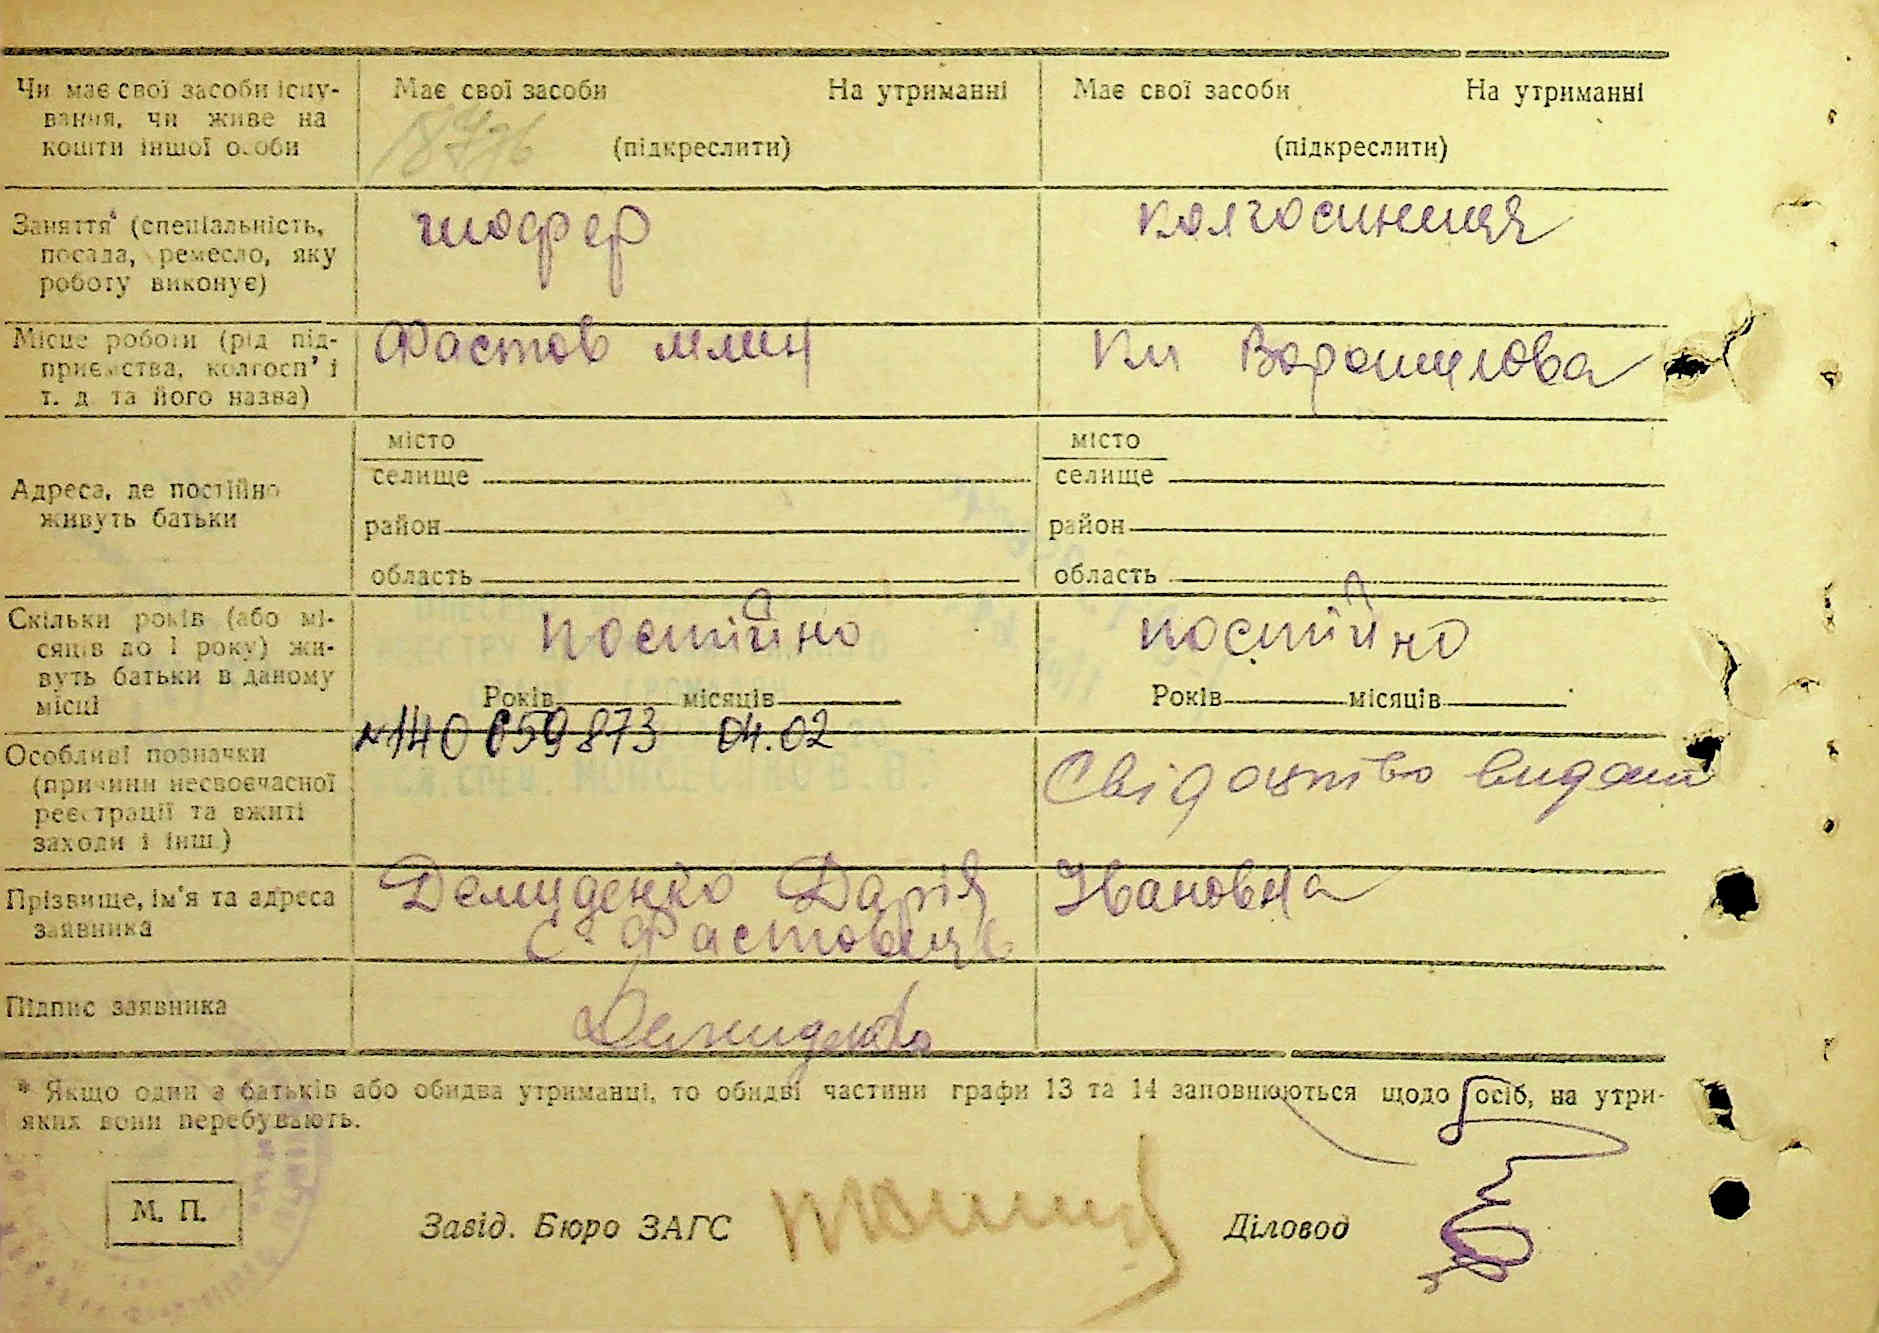 Чи має свої засоби існу-
вання, чи живе на
кошти іншої особи
Має свої засоби На утриманні
(підкреслити)
Має свої засоби На утриманні
(підкреслити)
Заняття* (спеціальність,
посада, ремесло, яку
роботу виконує)
шофер
колгоспниця
Місце роботи (рід під-
приємства, колгосп' і
т. д. та його назва)
Фастов млин
Км Ворошилова
Адреса, де постійно
живуть батьки
місто
селище
район
область
місто
селище
район
область
Скільки років (або мі-
сяців до 1 року) жи-
вуть батьки в даному
місці
постійно
Років місяців
постійно
Років місяців
Особливі позначки
(причини несвоєчасної
реєстрації та вжиті
заходи і інш.)
№140 059873 04.02
Свідоцтво видан
Прізвище, ім'я та адреса
заявника
Демиденко Дарія Івановна
с. Фастовець
Підпис заявника
Демиденко
* Якщо один з батьків або обидва утриманці, то обидві частини графи 13 та 14 заповнюються щодо осіб, на утри-
яких вони перебувають.
М. П.
Завід. Бюро ЗАГС
Діловод